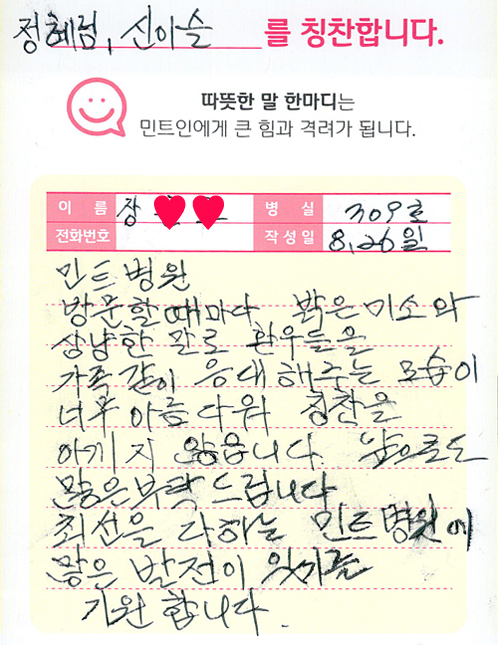 정혜림, 신아슬 를 칭찬합니다.
따뜻한 말 한마디는
민트인에게 큰 힘과 격려가 됩니다.
이 름 장 병 실 309호
전화번호 작성일 8,26일
민트병원
방문할때마다 밝은미소와
상냥한 말로 환우들을
가족같이 응대해주는 모습이
너무 아름다워 칭찬을
아끼지 않습니다. 앞으로도
많은부탁 드립니다
최선을 다하는 민트병원에
많은 발전이 있기를
기원합니다.